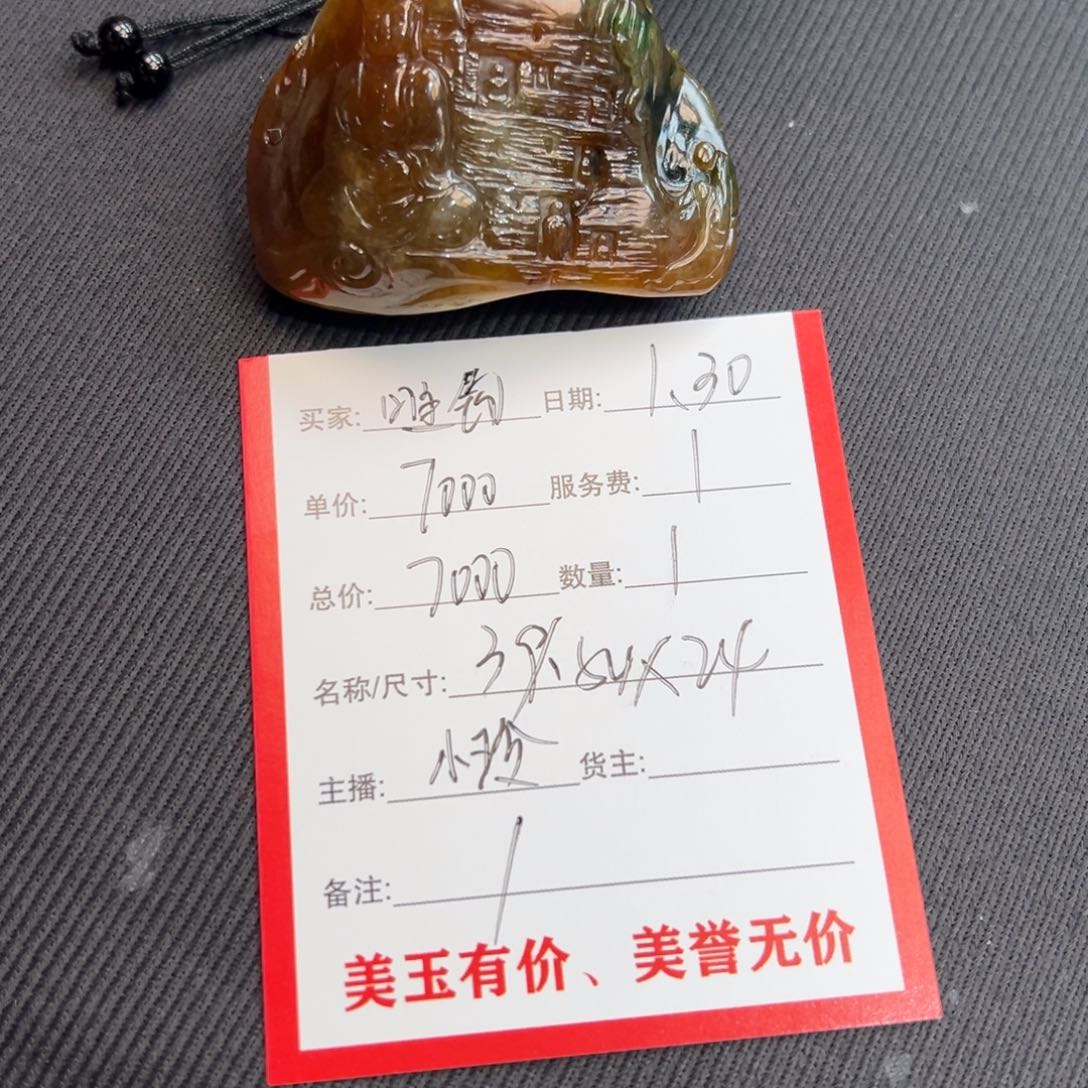 买家: 日期: 1.30
单价: 7000 服务费: /
总价: 7000 数量: 1
名称/尺寸: 39×54×24
主播: 小玲 货主:
备注: /
美玉有价、美誉无价